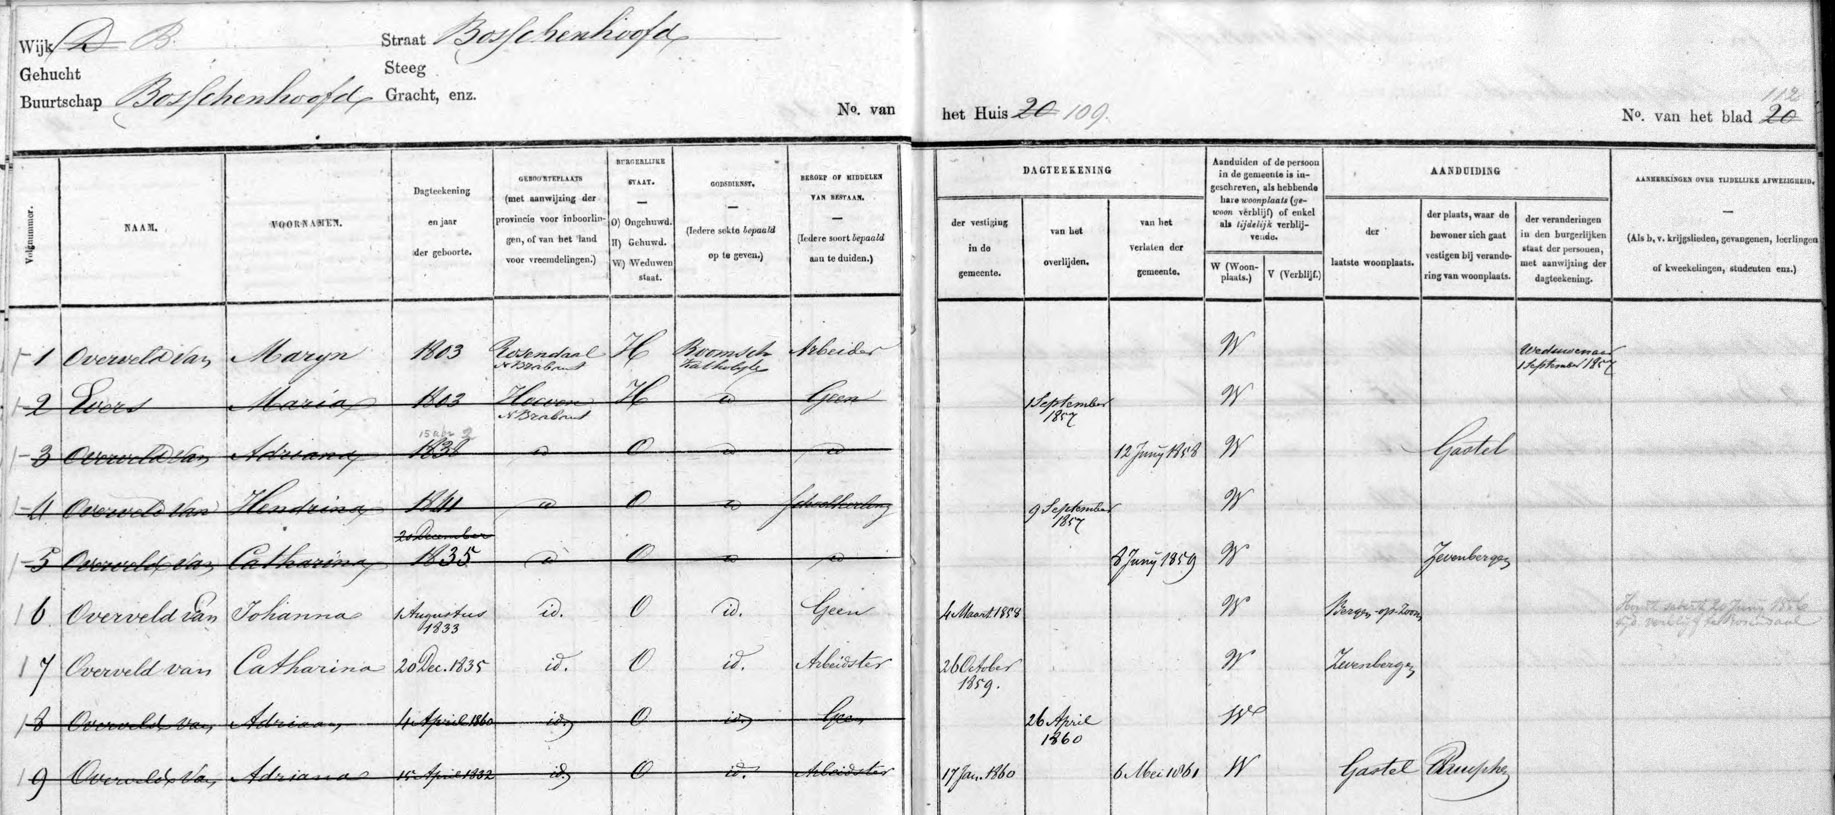 Wijk D B. Straat Bosschenhoofd
Gehucht Steeg
Buurtschap Bosschenhoofd Gracht, enz.
No. van het Huis 20 109. No. van het blad 20 112
Volgnummer.
NAAM.
VOORNAMEN.
Dagteekening
en jaar
der geboorte.
GEBOORTEPLAATS
(met aanwijzing der
provincie voor inboorlin-
gen, of van het land
voor vreemdelingen.)
BURGERLIJKE
STAAT.
—
O) Ongehuwd.
H) Gehuwd.
W) Weduwen
staat.
GODSDIENST.
—
(Iedere sekte bepaald
op te geven.)
BEROEP OF MIDDELEN
VAN BESTAAN.
—
(Iedere soort bepaald
aan te duiden.)
DAGTEEKENING
der vestiging
in de
gemeente.
van het
overlijden.
van het
verlaten der
gemeente.
Aanduiden of de persoon
in de gemeente is in-
geschreven, als hebbende
hare woonplaats (ge-
woon verblijf) of enkel
als tijdelijk verblij-
vende.
W (Woon-
plaats.)
V (Verblijf.)
AANDUIDING
der
laatste woonplaats.
der plaats, waar de
bewoner zich gaat
vestigen bij verande-
ring van woonplaats.
der veranderingen
in den burgerlijken
staat der personen,
met aanwijzing der
dagteekening.
AANMERKINGEN OVER TIJDELIJKE AFWEZIGHEID.
—
(Als b, v. krijgslieden, gevangenen, leerlingen
of kweekelingen, studenten enz.)
1 Overveld van Maryn 1803 Rosendaal N Brabant H Roomsch Katholyk Arbeider W Weduwenaar 1 September 1857
2 Evers Maria 1803 Hoeven N Brabant H id Geen 1 September 1857 W
3 Overveld van Adriana 1832 id O id id 12 Juny 1858 W Gastel
4 Overveld van Hendrina 1841 id O id Schoolleerling 9 September 1857 W
5 Overveld van Catharina 20 December 1835 id O id id 8 Juny 1859 W Zevenbergen
6 Overveld van Johanna 1 Augustus 1833 id. O id. Geen 4 Maart 1858 W Bergen-op-Zoom
7 Overveld van Catharina 20 Dec. 1835 id. O id. Arbeidster 26 October 1859. W Zevenbergen
8 Overveld van Adriaan 4 April 1860 id. O id. Geen 26 April 1860 W
9 Overveld van Adriana 15 April 1832 id. O id. Arbeidster 17 Jan. 1860 6 Mei 1861 W Gastel Rucphen